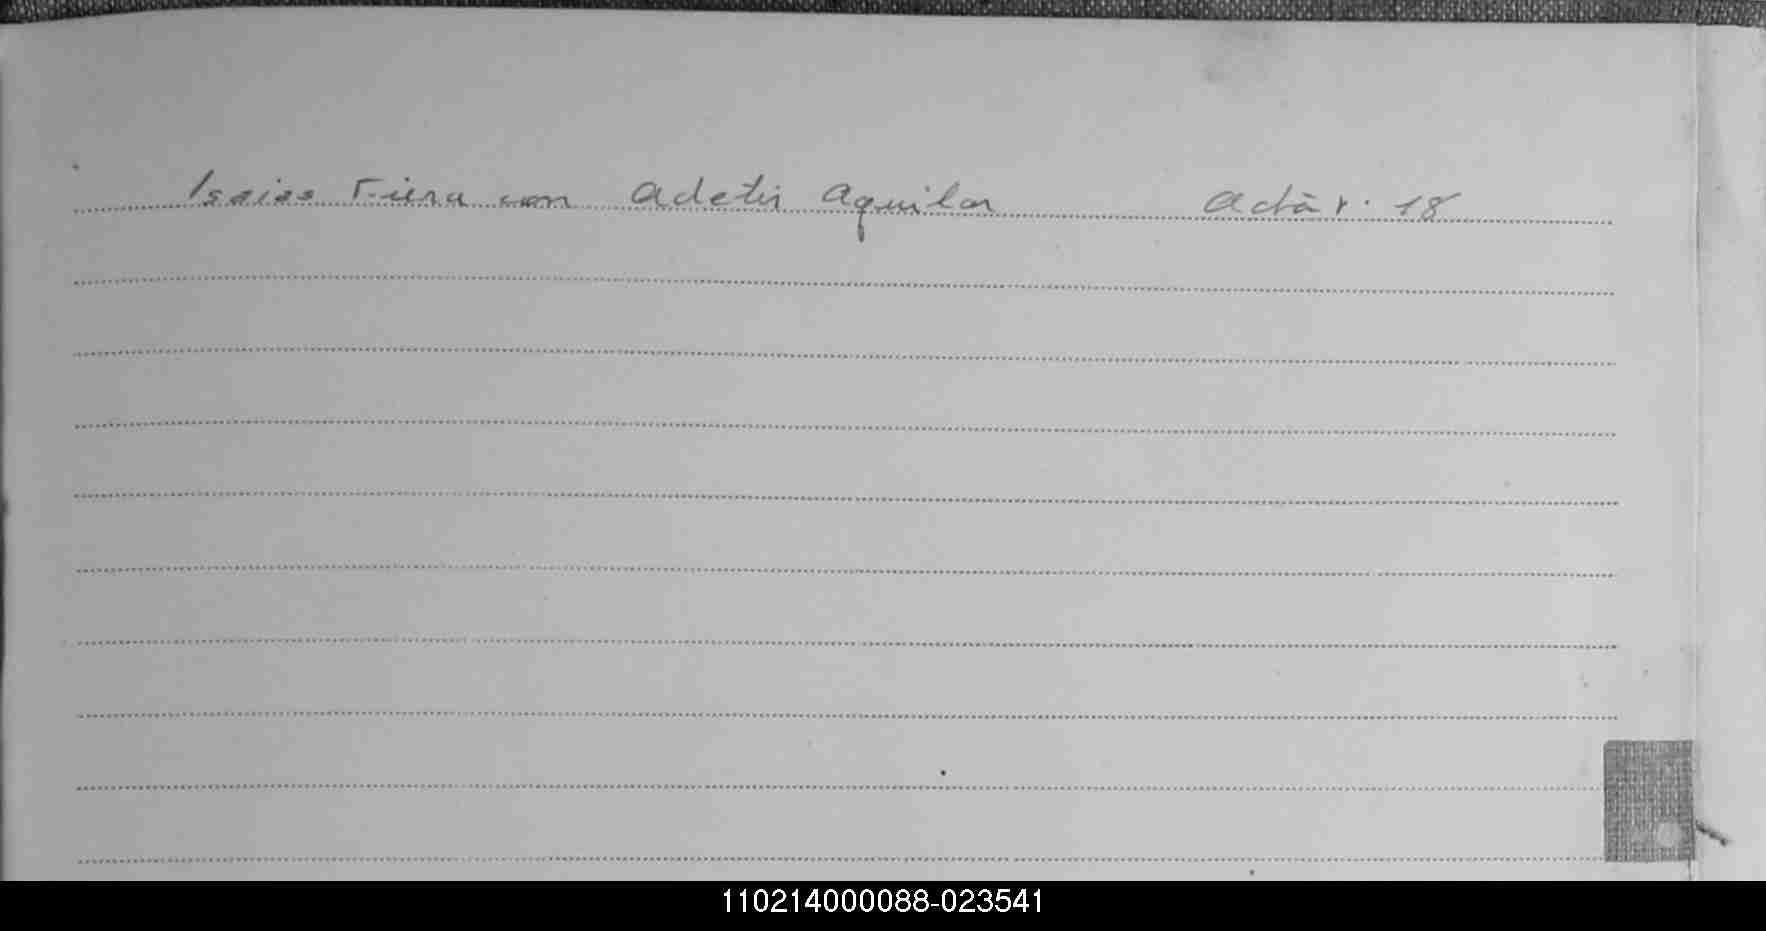 Isaias Fiera con Adetis Aguilar Acta r. 18
110214000088-023541